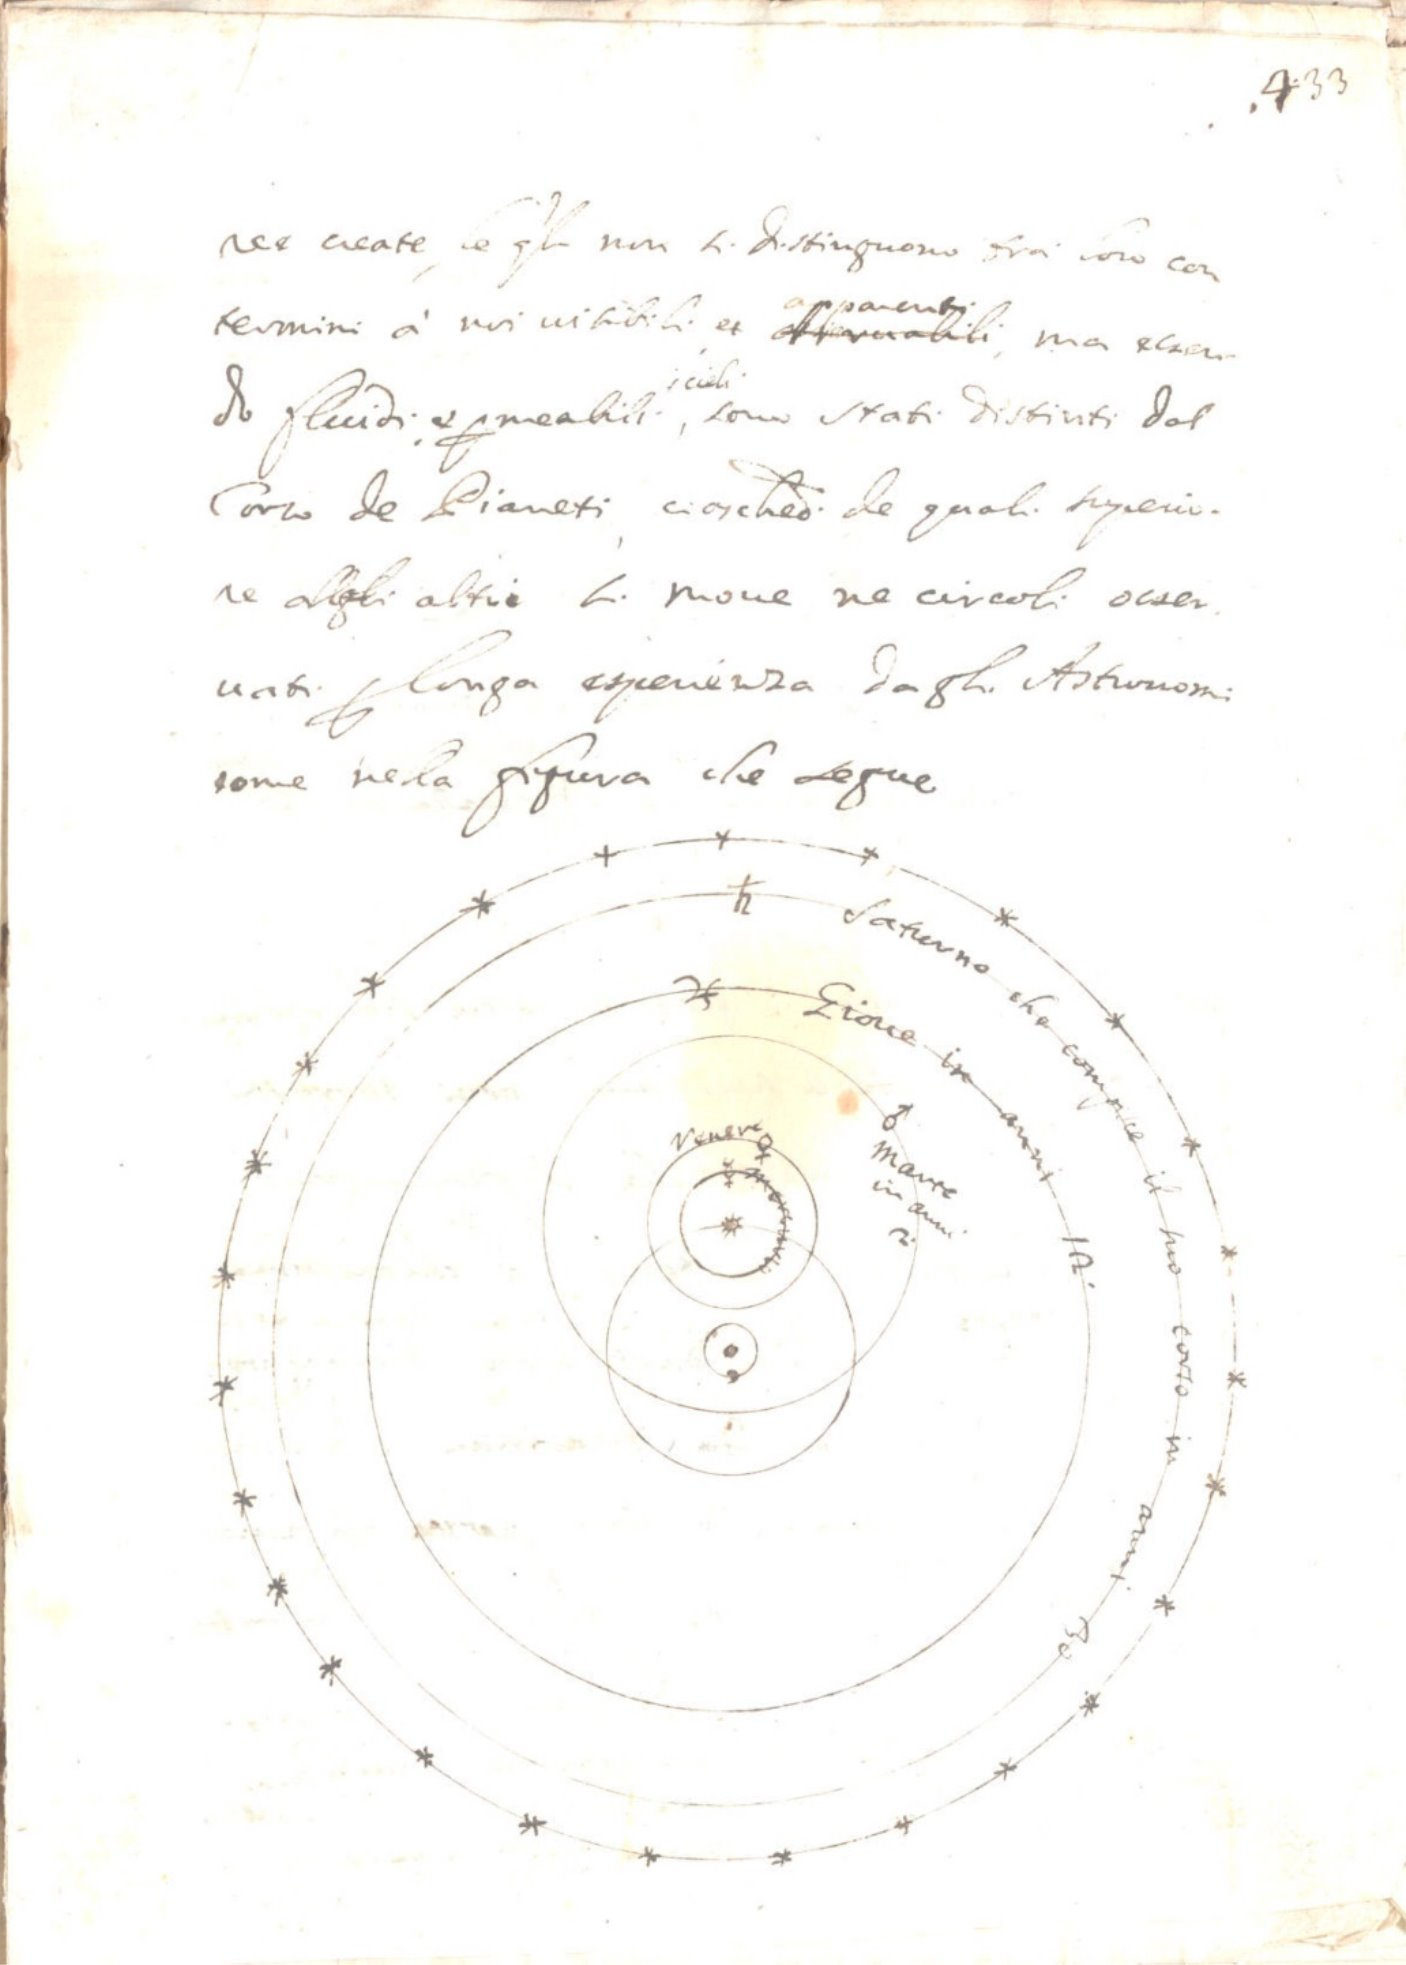 433
ree create, le qli non si distinguono frà loro con
termini à noi visibili, et apparenti osservabili, ma essen
do fluidi, et pmeabili i cieli, sono stati distinti dal
Corso de Pianeti, ciascheō. de quali superio-
re agli altri si moue ne circoli osser
uati p longa esperienza dagli Astronomi
come nella figura che segue
♄ Saturno che compice il suo corso in anni 30
♃ Gioue in anni 12.
♂
Marte
in anni
2.
Venere ♀
☿ Mercurio